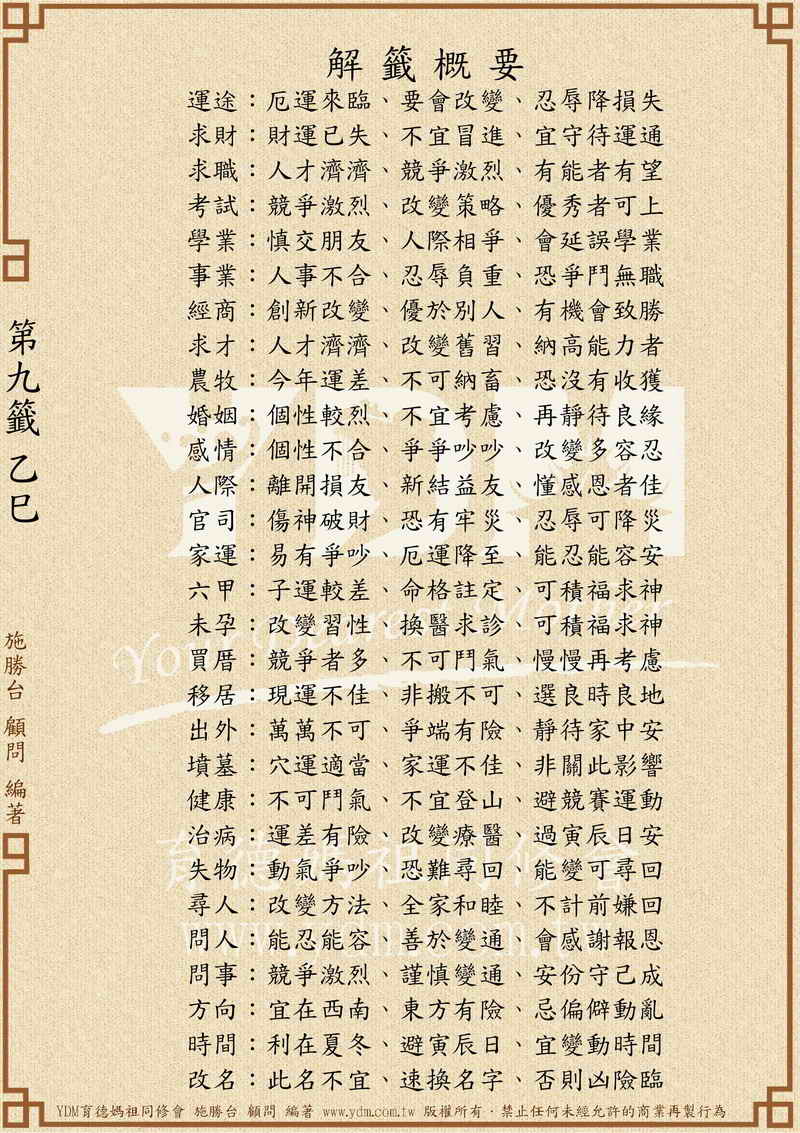 解籤概要
運途：厄運來臨、要會改變、忍辱降損失
求財：財運已失、不宜冒進、宜守待運通
求職：人才濟濟、競爭激烈、有能者有望
考試：競爭激烈、改變策略、優秀者可上
學業：慎交朋友、人際相爭、會延誤學業
事業：人事不合、忍辱負重、恐爭鬥無職
經商：創新改變、優於別人、有機會致勝
求才：人才濟濟、改變舊習、納高能力者
農牧：今年運差、不可納畜、恐沒有收獲
婚姻：個性較烈、不宜考慮、再靜待良緣
感情：個性不合、爭爭吵吵、改變多容忍
人際：離開損友、新結益友、懂感恩者佳
官司：傷神破財、恐有牢災、忍辱可降災
家運：易有爭吵、厄運降至、能忍能容安
六甲：子運較差、命格註定、可積福求神
未孕：改變習性、換醫求診、可積福求神
買厝：競爭者多、不可鬥氣、慢慢再考慮
移居：現運不佳、非搬不可、選良時良地
出外：萬萬不可、爭端有險、靜待家中安
墳墓：穴運適當、家運不佳、非關此影響
健康：不可鬥氣、不宜登山、避競賽運動
治病：運差有險、改變療醫、過寅辰日安
失物：動氣爭吵、恐難尋回、能變可尋回
尋人：改變方法、全家和睦、不計前嫌回
問人：能忍能容、善於變通、會感謝報恩
問事：競爭激烈、謹慎變通、安份守己成
方向：宜在西南、東方有險、忌偏僻動亂
時間：利在夏冬、避寅辰日、宜變動時間
改名：此名不宜、速換名字、否則凶險臨
第九籤 乙巳
施勝台 顧問 編著
YDM
Your Dearest Mother
育德媽祖同修會
www.ydm.com.tw
YDM育德媽祖同修會 施勝台 顧問 編著 www.ydm.com.tw 版權所有．禁止任何未經允許的商業再製行為